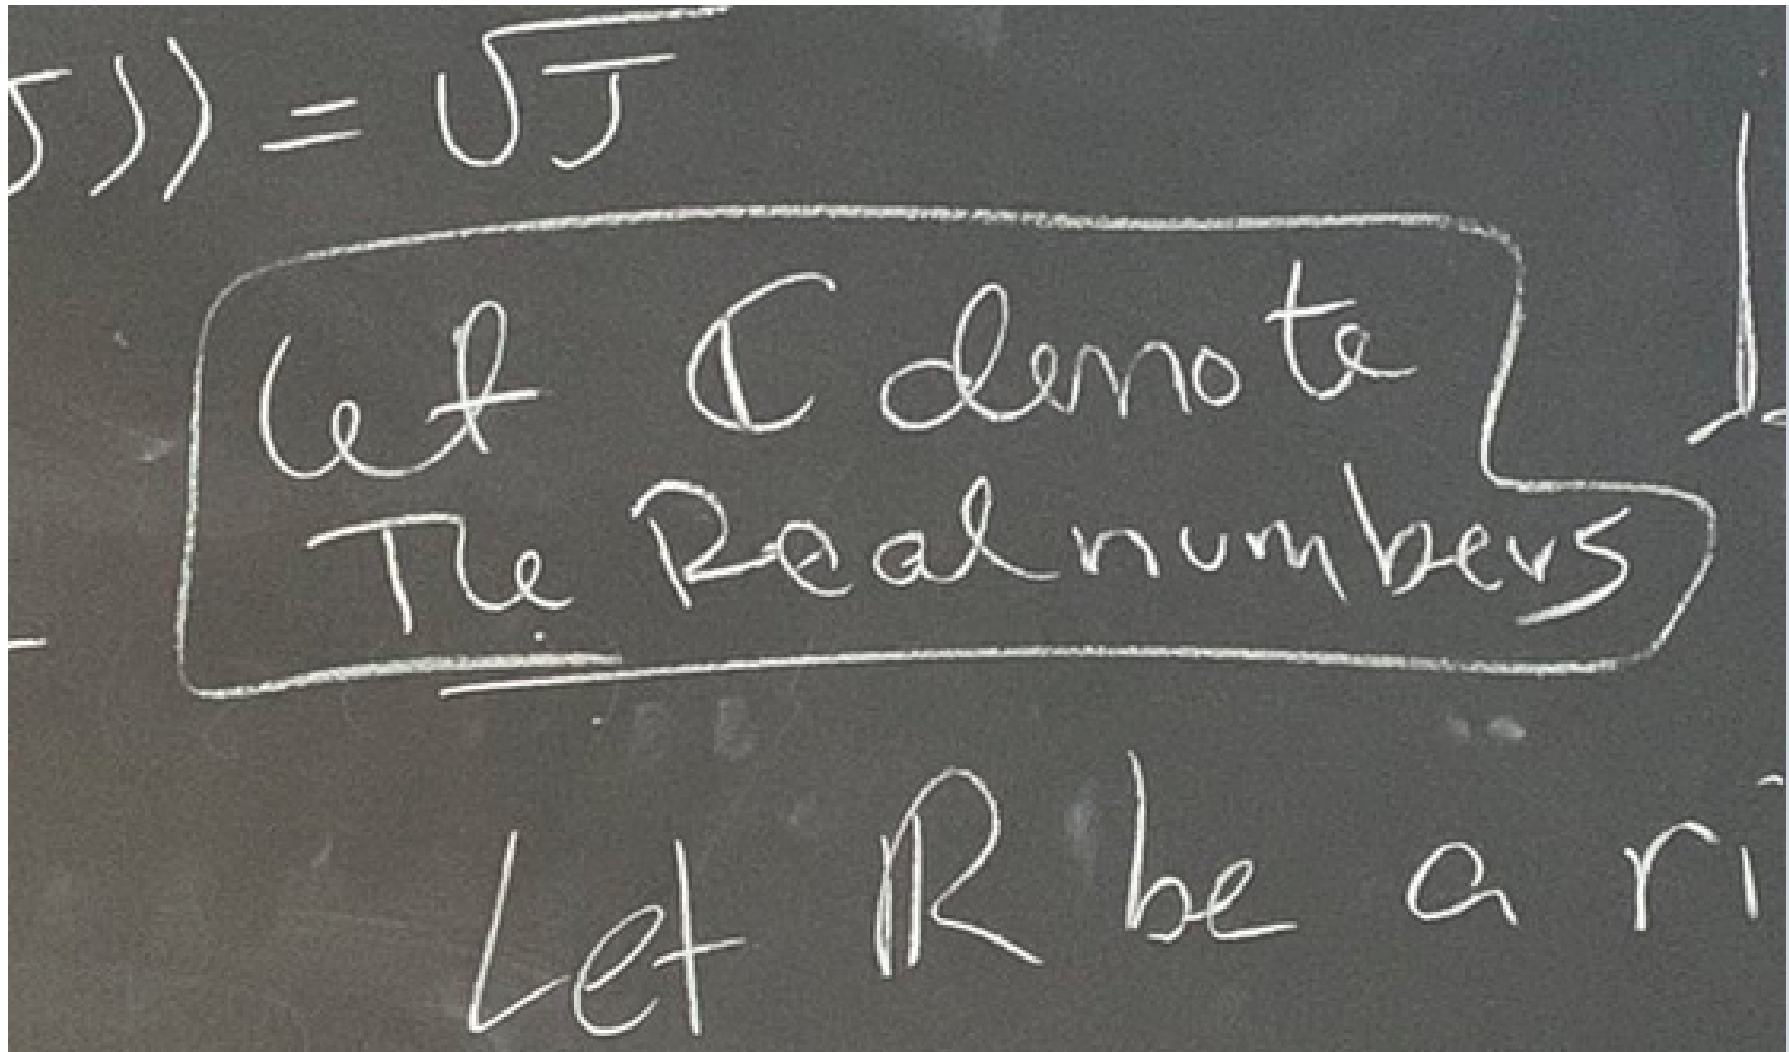 J)) = √J
Let ℂ denote
The Real numbers
Let ℝ be a ri